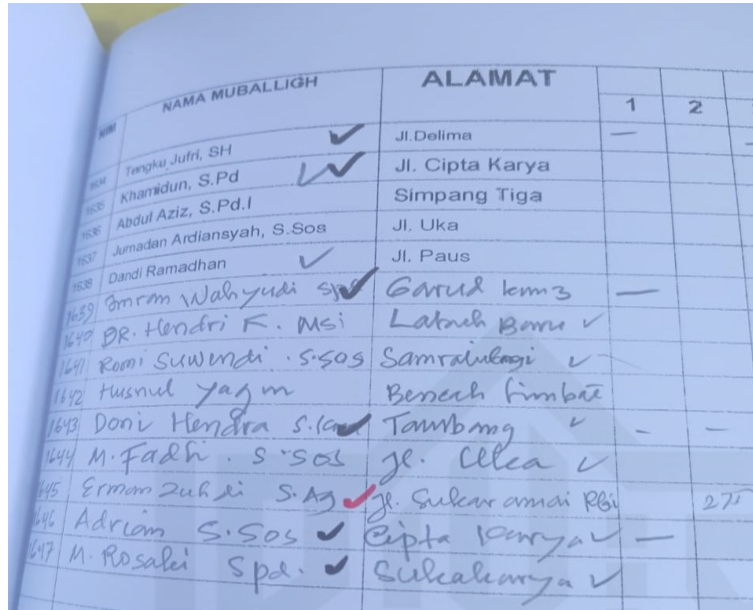 NIM NAMA MUBALLIGH ALAMAT 1 2
1634 Tengku Jufri, SH Jl.Delima —
1635 Khamidun, S.Pd Jl. Cipta Karya
1636 Abdul Aziz, S.Pd.I Simpang Tiga
1637 Jumadan Ardiansyah, S.Sos Jl. Uka
1638 Dandi Ramadhan Jl. Paus
1639 Imron Wahyudi Garud km 3 —
1640 DR. Hendri K. Msi Labuh Baru
1641 Romi Suwendi . S.Sos Samratulagi
1642 Husnul
1643 Doni Hendra Tambang - -
1644 M. Fadhi . S.Sos Jl. Uka
1645 Erman Zuhdi S.Ag Jl. Sukaramai
1646 Adrian S.Sos Cipta Karya —
1647 M. Rosaki Spd. Sukakarya